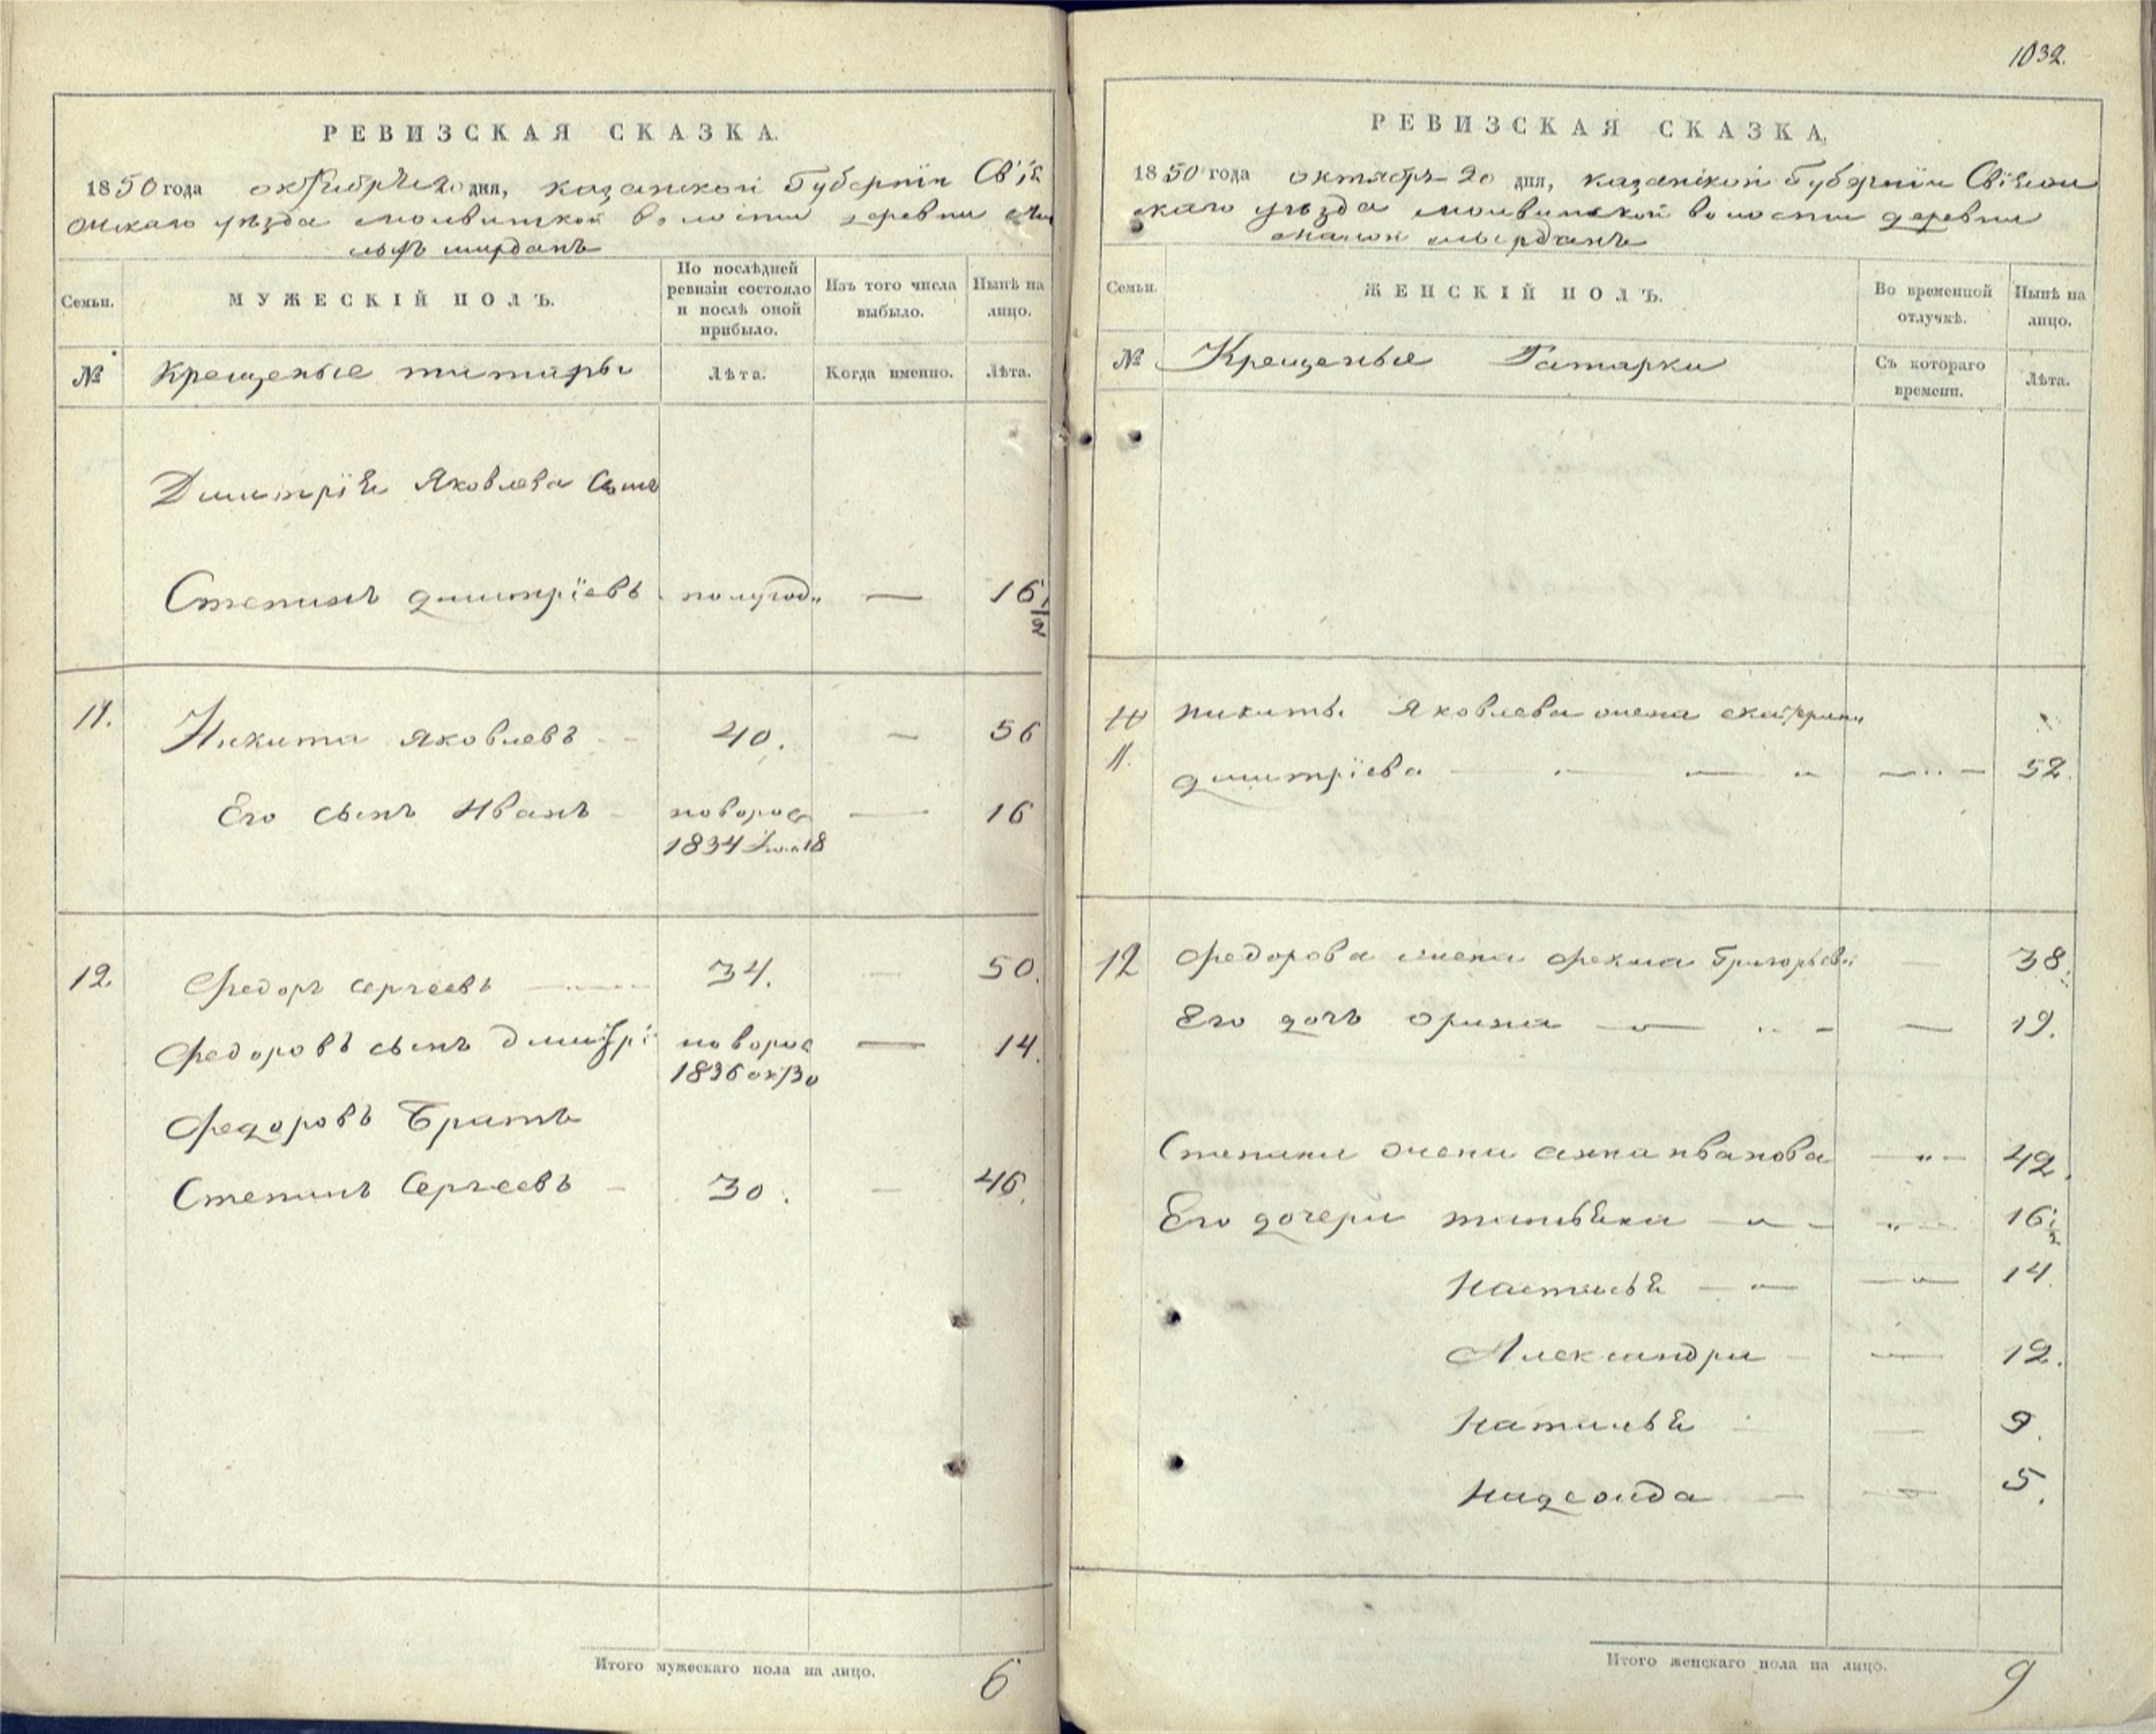 РЕВИЗСКАЯ СКАЗКА.
1850 года октября 20 дня, казанской Губернiи Свiя
жскаго уѣзда молвинской волости деревни Ма
лыхъ ширданъ
Семьи.
МУЖЕСКIЙ ПОЛЪ.
По послѣдней ревизiи состояло и послѣ оной прибыло.
Изъ того числа выбыло.
Нынѣ на лицо.
№
Крещеные татары
Лѣта.
Когда именно.
Лѣта.
Димитрiя Яковлева Сынъ
Степанъ димитрiевъ полугод. — 16 1/2
11. Никита яковлевъ 40. — 56
Его сынъ Иванъ новорож — 16
1834 18
12. Федоръ сергеевъ 34. — 50.
Федоровъ сынъ дмитрi новорож — 14.
1836 ок 30
Федоровъ Братъ
Степанъ Сергеевъ — 30. — 46.
Итого мужескаго пола на лицо. 6
1032.
РЕВИЗСКАЯ СКАЗКА,
1850 года октября 20 дня, казанской Губернiи Свiяж
скаго уѣзда молвинской волости деревни
малой ширданъ
Семьи.
ЖЕНСКIЙ ПОЛЪ.
Во временной отлучкѣ.
Нынѣ на лицо.
№
Крещеные Татарки
Съ котораго времени.
Лѣта.
никиты Яковлева жена екатерина
11. димитрiева 52.
12 Федорова жена фекла Григорьева 38.
Его дочь орина — 19.
Степана жена анна иванова 42.
Его дочери татьяна 16 1/2
Настасья 14.
Александра 12.
Наталья 9.
надежда 5.
Итого женскаго пола на лицо. 9